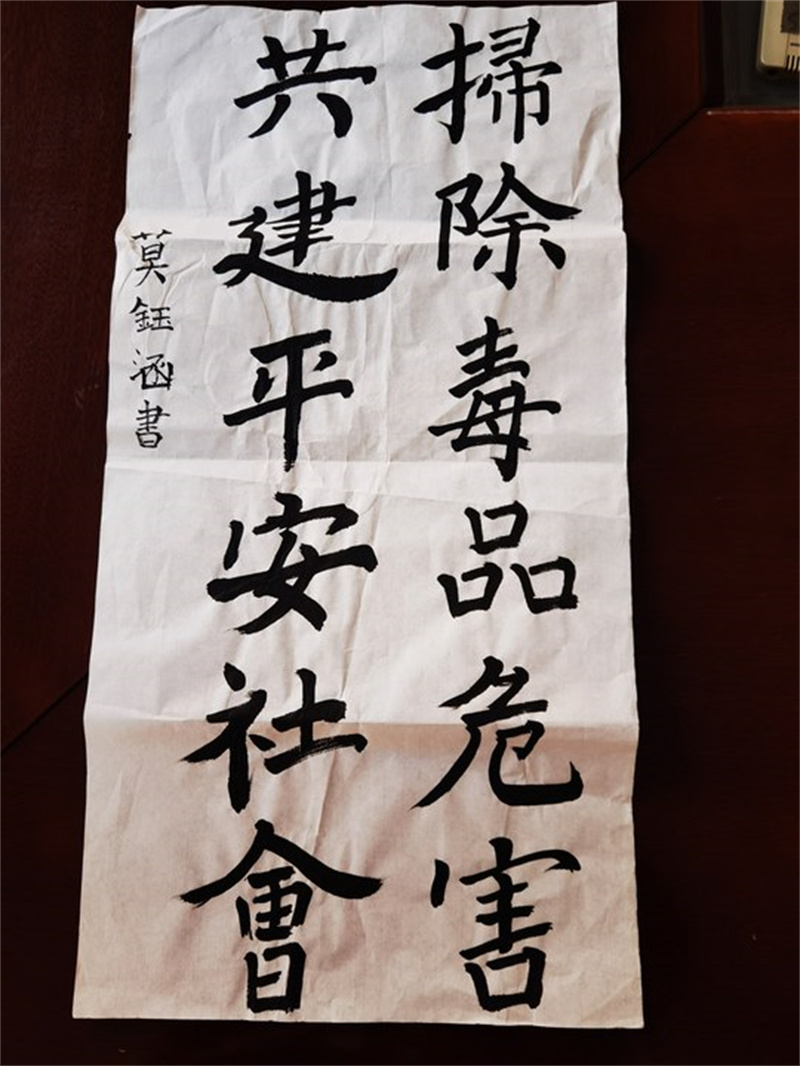 掃除毒品危害
共建平安社會
莫鈺涵書